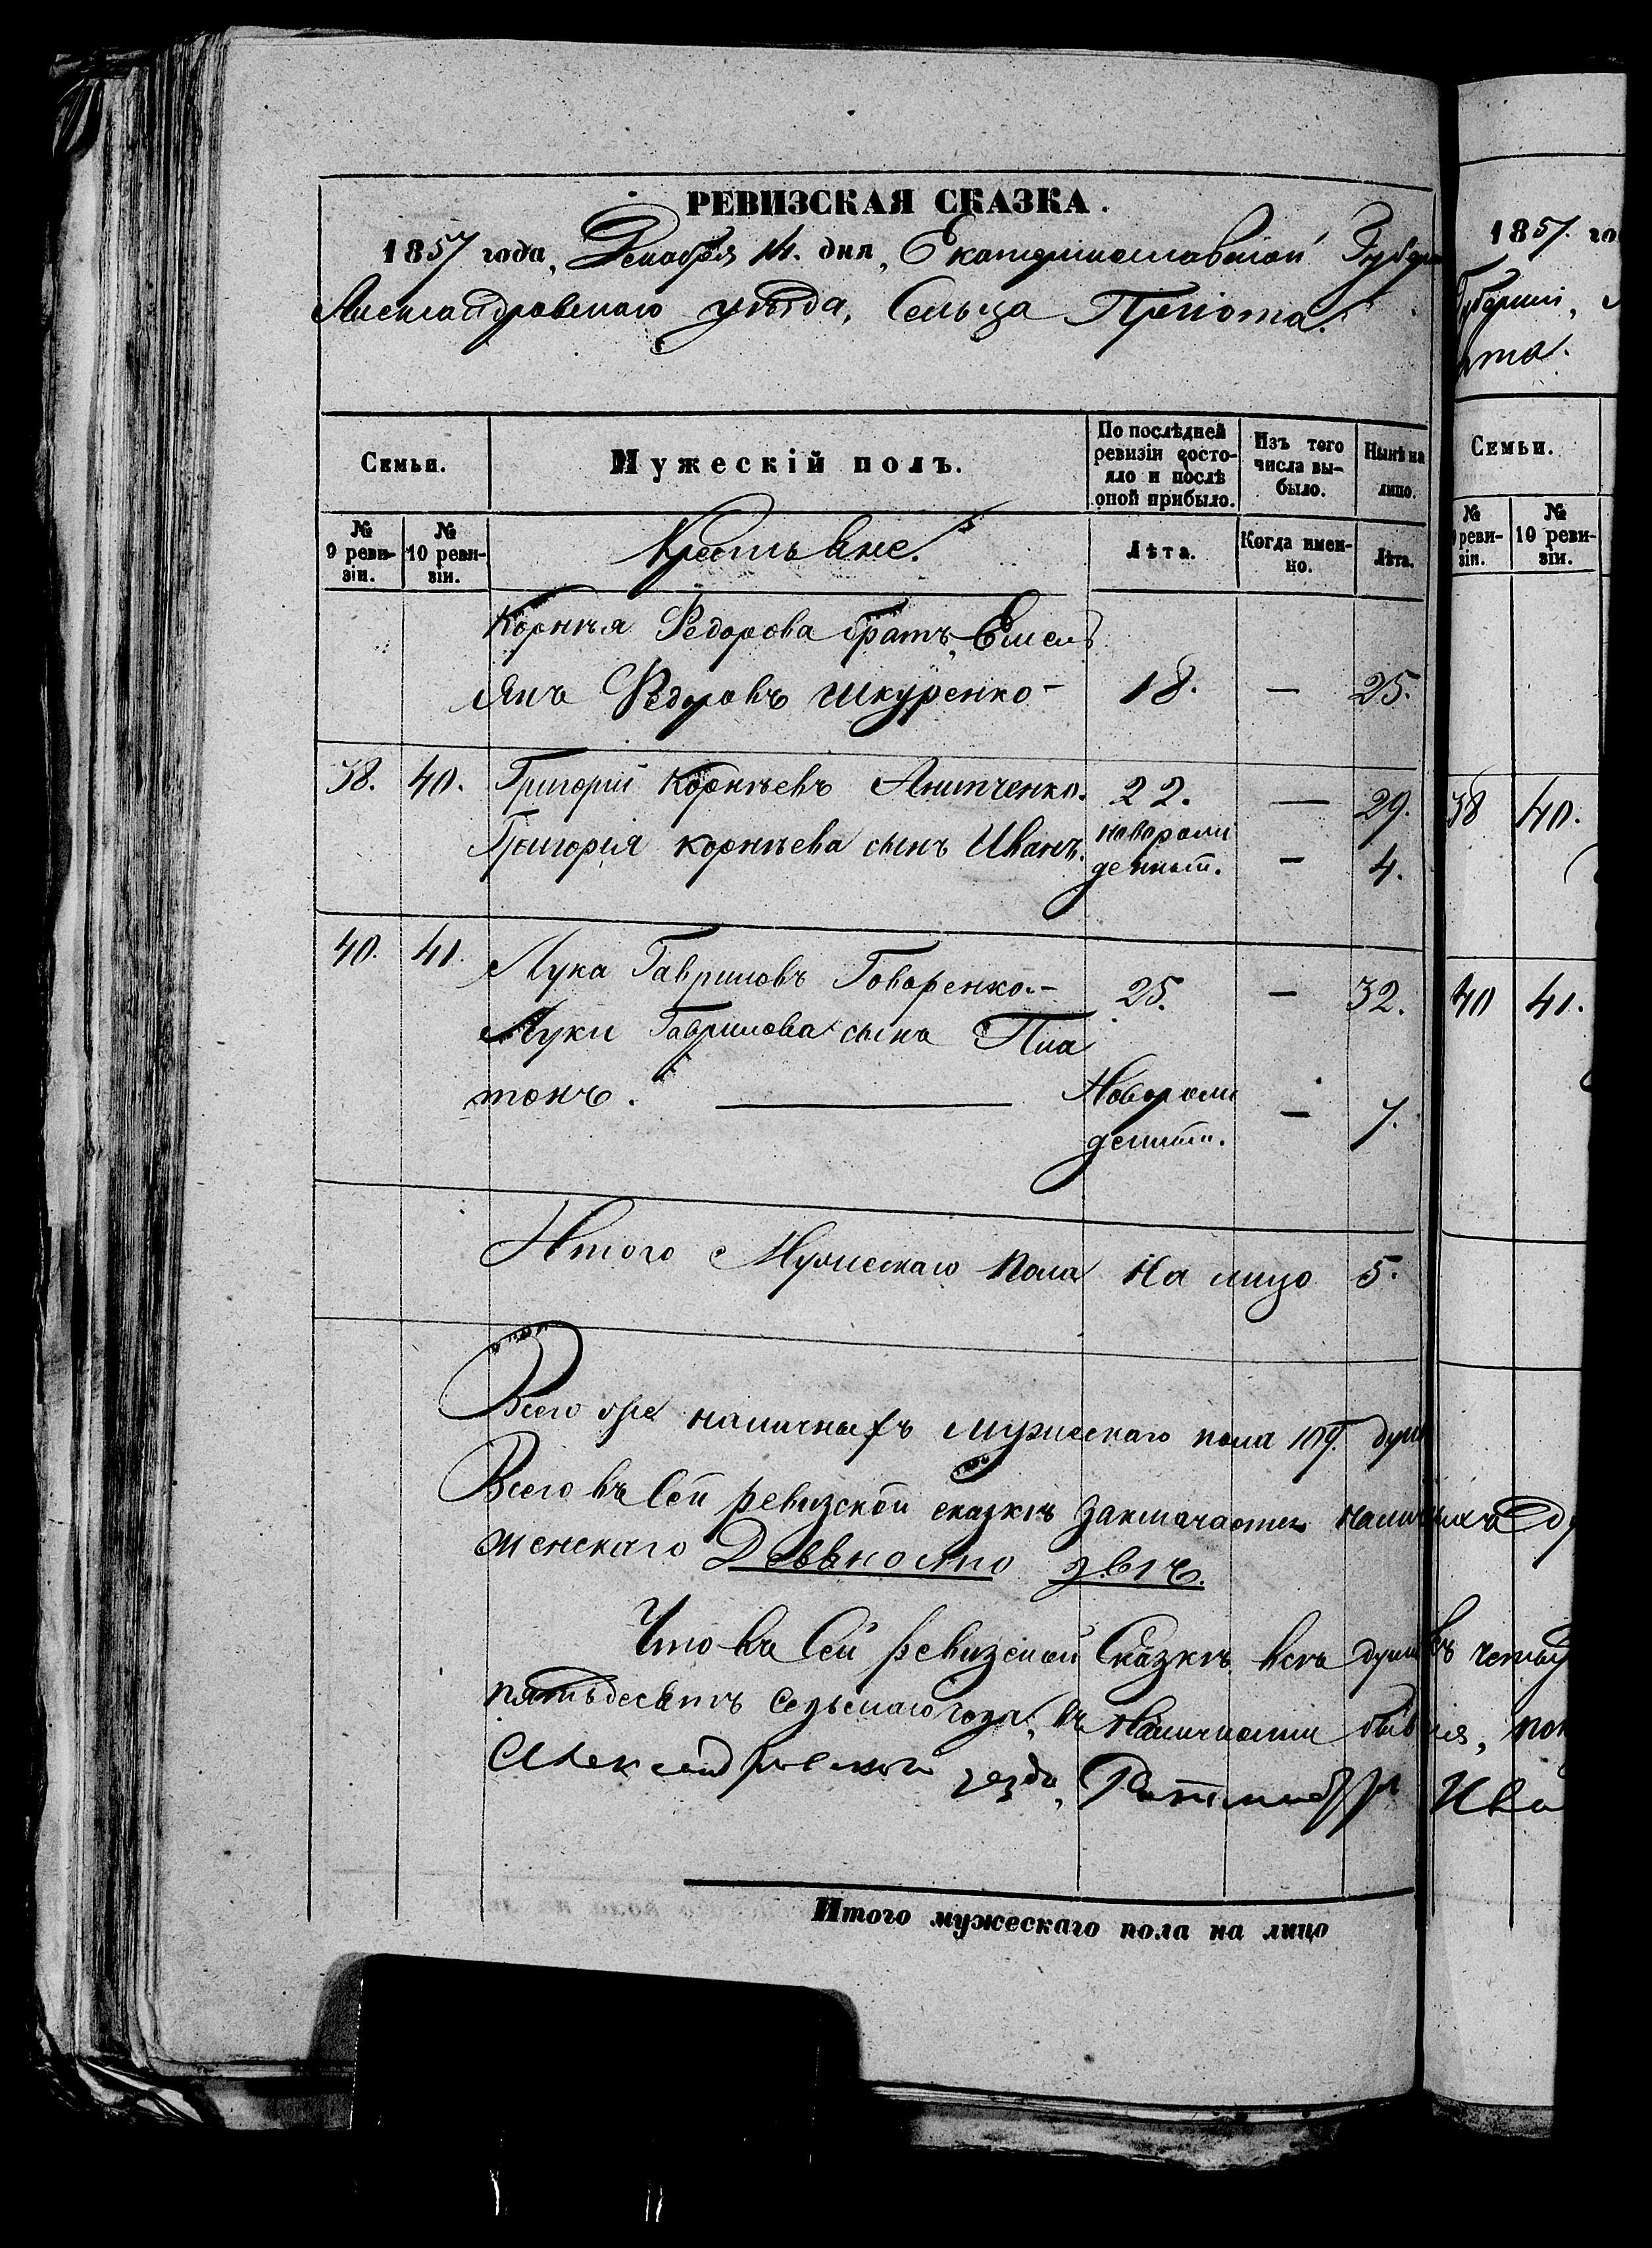 РЕВИЗСКАЯ СКАЗКА.
1857 года, Декабря 14. дня, Екатеринославской Губерн
Александровскаго уѣзда, Сельца
Семьи.
Мужескій полъ.
По послѣдней ревизіи состо-
яло и послѣ оной прибыло.
Изъ того числа вы-
было.
Нынѣ на лицо.
№ 9 реви-
зіи.
№ 10 реви-
зіи.
Крестьяне.
Лѣта.
Когда имен-
но.
Лѣта.
Корнѣя Федорова братъ, Емель
янъ Федоровъ Шкуренко - 18. — 25.
38. 40. Григорій Корнѣевъ 22. — 29.
Григорія Корнѣева сынъ Иванъ. новорож
денный. — 4.
40. 41. Лука Гавриловъ Говоренко.- 25. — 32.
Луки Гаврилова сынъ Пла
тонъ. Новорож
денный. — 7.
Итого Мужескаго пола на лицо 5.
Всего же наличныхъ мужескаго пола 109. душ
Всего въ Сей ревизской сказкѣ заключается наличныхъ
женскаго Девяносто двѣ.
Что въ Сей ревизской Сказкѣ всѣ души
пятьдесятъ седьмаго года, въ наличности
Александровскаго уезда, Ива
Итого мужескаго пола на лицо
1857. го
Губерніи,
та.
Семьи.
№
реви-
зіи.
№
10 реви-
зіи.
38 40.
40 41.